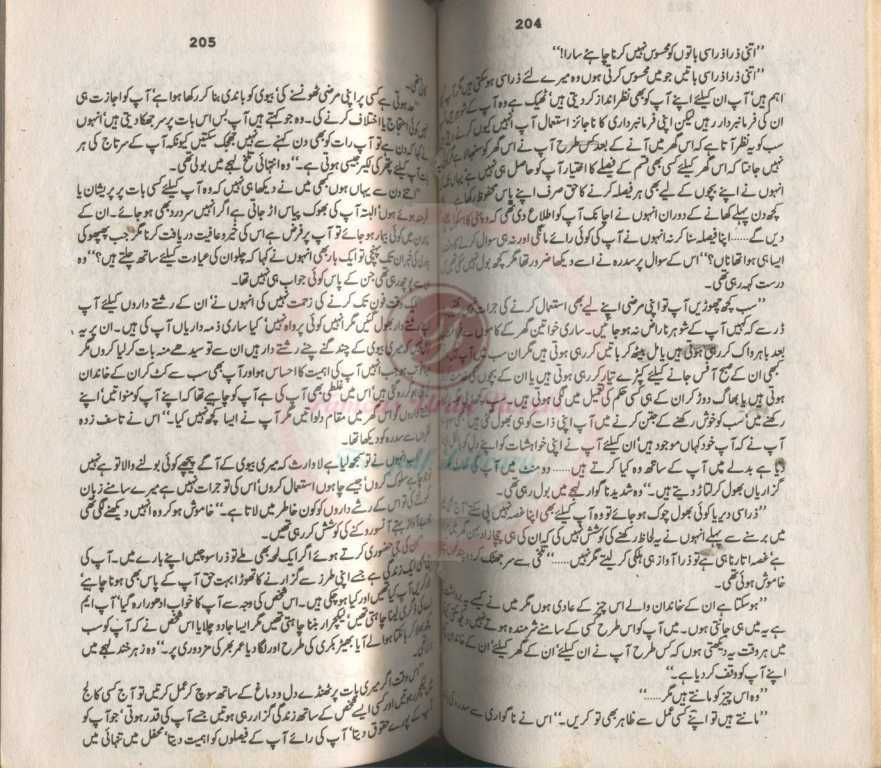 204
”اتنی ذرا ذرا سی باتوں کو محسوس نہیں کرنا چاہئے سارا!“
”اتنی ذرا ذرا سی باتیں جو میں محسوس کرتی ہوں وہ میرے لئے ذرا سی ہوسکتی ہیں
اہم ہیں‘ آپ ان کیلئے اپنے آپ کو بھی نظر انداز کر دیتی ہیں‘ ٹھیک ہے وہ آپ کے شوہر ہیں
ان کی فرمانبردار رہیں لیکن اپنی فرمانبرداری کا ناجائز استعمال آپ انہیں کیوں کرنے
سب کو یہ نظر آتا ہے کہ اس گھر میں آنے کے بعد کس طرح آپ نے اس گھر کو سنبھالا ہے
نہیں جانتا کہ اس گھر کیلئے کسی بھی قسم کے فیصلے کا اختیار آپ کو حاصل ہی نہیں ہے
انہوں نے اپنے بچوں کے لیے بھی ہر فیصلہ کرنے کا حق صرف اپنے پاس محفوظ رکھا
کچھ دن پہلے کھانے کے دوران انہوں نے اچانک آپ کو اطلاع دی تھی کہ وہ
دیں گے...... اپنا فیصلہ سنا کر نہ انہوں نے آپ کی کوئی رائے مانگی اور نہ ہی سوال کرنے کا
ایسا ہی ہوا تھا ناں؟“ اس کے سوال پر سدرہ نے اسے دیکھا ضرور تھا مگر کچھ بول نہیں سکی تھی
درست کہہ رہی تھی۔
”سب کچھ چھوڑیں آپ تو اپنی مرضی اپنے لیے بھی استعمال کرنے کی جرات نہیں
ڈر سے کہ کہیں آپ کے شوہر ناراض نہ ہو جائیں۔ ساری خواتین گھر کے کاموں سے فارغ
بعد باہر واک کر رہی ہوتی ہیں یا مل بیٹھ کر باتیں کر رہی ہوتی ہیں مگر ان سب میں آپ
کبھی ان کے صبح آفس جانے کیلئے کپڑے تیار کر رہی ہوتی ہیں یا ان کے بچوں کی
ہیں یا بھاگ دوڑ کر ان کے ہی کسی حکم کی تعمیل میں لگی ہوتی ہیں
رکھنے میں‘ سب کو خوش رکھنے کے جتن کرنے میں آپ اپنی ذات کو ہی بھول گئی ہیں
آپ نے کہ آپ خود کہاں موجود ہیں‘ ان کیلئے آپ نے اپنی خواہشات کو اپنے دل کو مار
دیا ہے بدلے میں آپ کے ساتھ وہ کیا کرتے ہیں...... دو منٹ میں آپ کی
گزاریاں بھول کر لتاڑ دیتے ہیں۔“ وہ شدید ناگوار لہجے میں بول رہی تھی۔
”ذرا سی دیر یا کوئی بھول چوک ہو جائے تو وہ آپ کیلئے بھی اپنا غصہ نہیں پی سکتے‘ آج
میں برسنے سے پہلے انہوں نے یہ لحاظ رکھنے کی کوشش نہیں کی کہ ان کی چیخ
ہے‘ غصہ اتارنا ہی ہے تو ذرا آواز ہی ہلکی کر لیتے مگر نہیں......“ تلخی سے سر جھٹک کر وہ
خاموش ہوئی تھی۔
”ہوسکتا ہے ان کے خاندان والے اس چیز کے عادی ہوں مگر میں نے کیسے یہ برداشت
ہے یہ میں ہی جانتی ہوں۔ میں آپ کو اس طرح کسی کے سامنے شرمندہ ہوتے نہیں دیکھ سکتی
میں ہر وقت یہ دیکھتی ہوں کہ کس طرح آپ نے ان کیلئے‘ ان کے گھر کیلئے‘ ان کے خاندان
اپنے آپ کو وقف کر دیا ہے۔“
”وہ اس چیز کو مانتے ہیں مگر......“
”مانتے ہیں تو اپنے کسی عمل سے ظاہر بھی تو کریں۔“ اس نے ناگواری سے سدرہ کی
205
”حد ہوتی ہے کسی پر اپنی مرضی ٹھونسنے کی‘ بیوی کو باندی بنا کر رکھا ہوا ہے‘ آپ کو اجازت ہی
نہیں کوئی احتجاج یا اختلاف کرنے کی۔ وہ جو کہتے ہیں آپ بس اس بات پر سر جھکا دیتی ہیں‘ انہوں
نے کہا کہ دن ہے تو آپ رات کو بھی دن کہنے سے نہیں جھجک سکتیں کیونکہ آپ کے سرتاج کی ہر
بات آپ کیلئے پتھر کی لکیر جیسی ہوتی ہے۔“ وہ انتہائی تلخ لہجے میں بولی تھی۔
”اتنے دن سے یہاں ہوں کبھی میں نے دیکھا ہی نہیں کہ وہ آپ کیلئے کسی بات پر پریشان یا
فکرمند ہوئے ہوں‘ البتہ آپ کی بھوک پیاس اڑ جاتی ہے اگر انہیں سر درد بھی ہو جائے۔ ان کے
خاندان میں کوئی بیمار ہو جائے تو آپ پر فرض ہے اس کی خیر و عافیت دریافت کرنا مگر جب پھپھو کی
بیماری کی خبر ان تک پہنچی تو ایک بار بھی انہوں نے کہا کہ چلو ان کی عیادت کیلئے ساتھ چلتے ہیں؟“ وہ
پوچھ رہی تھی جن کے پاس کوئی جواب ہی نہیں تھا۔
ایک وقت فون تک کرنے کی زحمت نہیں کی انہوں نے‘ ان کے رشتے داروں کیلئے آپ
اپنے رشتے دار بھول گئیں مگر انہیں کوئی پرواہ نہیں‘ کیا ساری ذمہ داریاں آپ کی ہیں۔ ان پر یہ
نہیں کہ میری بیوی کے چند گنے چنے رشتے دار ہیں ان سے تو سیدھے منہ بات کر لیا کروں مگر
جب انہیں آپ کی اہمیت کا احساس ہو اور آپ بھی سب سے کٹ کر ان کے خاندان
کی ہو کر رہ گئی ہیں اس میں غلطی بھی آپ کی ہے آپ کو چاہیے تھا کہ اپنے آپ کو منواتیں‘ اپنے
رشتے داروں کو اس گھر میں مقام دلواتیں مگر آپ نے ایسا کچھ نہیں کیا۔“ اس نے تاسف زدہ
نظروں سے سدرہ کو دیکھا تھا۔
انہوں نے تو سمجھ لیا ہے لاوارث کہ میری بیوی کے آگے پیچھے کوئی بولنے والا تو ہے نہیں
جو چاہے سلوک کروں‘ جیسے چاہوں استعمال کروں‘ اس کی تو جرات نہیں ہے میرے سامنے زبان
کھولنے کی تو اس کے رشتے داروں کو کون خاطر میں لاتا ہے۔“ خاموش ہو کر وہ انہیں دیکھنے لگی تھی
جو بے آواز بہتے آنسو روکنے کی کوشش کر رہی تھیں۔
”ان کی جی حضوری کرتے ہوئے اگر ایک لمحہ بھی ملے تو ذرا سوچیں اپنے بارے میں۔ آپ کی
بھی ایک زندگی ہے جسے اپنی طرز سے گزارنے کا تھوڑا بہت حق آپ کے پاس بھی ہونا چاہیے‘
کہ آپ کیا تھیں اور کیا ہو چکی ہیں۔ اس شخص کی وجہ سے آپ کا خواب ادھورا رہ گیا‘ آپ ایم
کی ڈگری لینا چاہتی تھیں‘ لیکچرار بننا چاہتی تھیں مگر ایسا جادو چلایا اس شخص نے کہ آپ کو سب
ہانکتا ہوا لے آیا بھیڑ بکری کی طرح اور لگا دیا عمر بھر کی مزدوری پر۔“ وہ زہر خند لہجے میں
”اس وقت اگر میری بات پر ٹھنڈے دل و دماغ کے ساتھ سوچ کر عمل کرتیں تو آج کسی کالج
میں لیکچرار ہوتیں اور کسی ایسے شخص کے ساتھ زندگی گزار رہی ہوتیں جسے آپ کی قدر ہوتی‘ جو آپ کو
آپ کے پورے حقوق دیتا‘ آپ کی رائے آپ کے فیصلوں کو اہمیت دیتا‘ محفل میں تنہائی میں